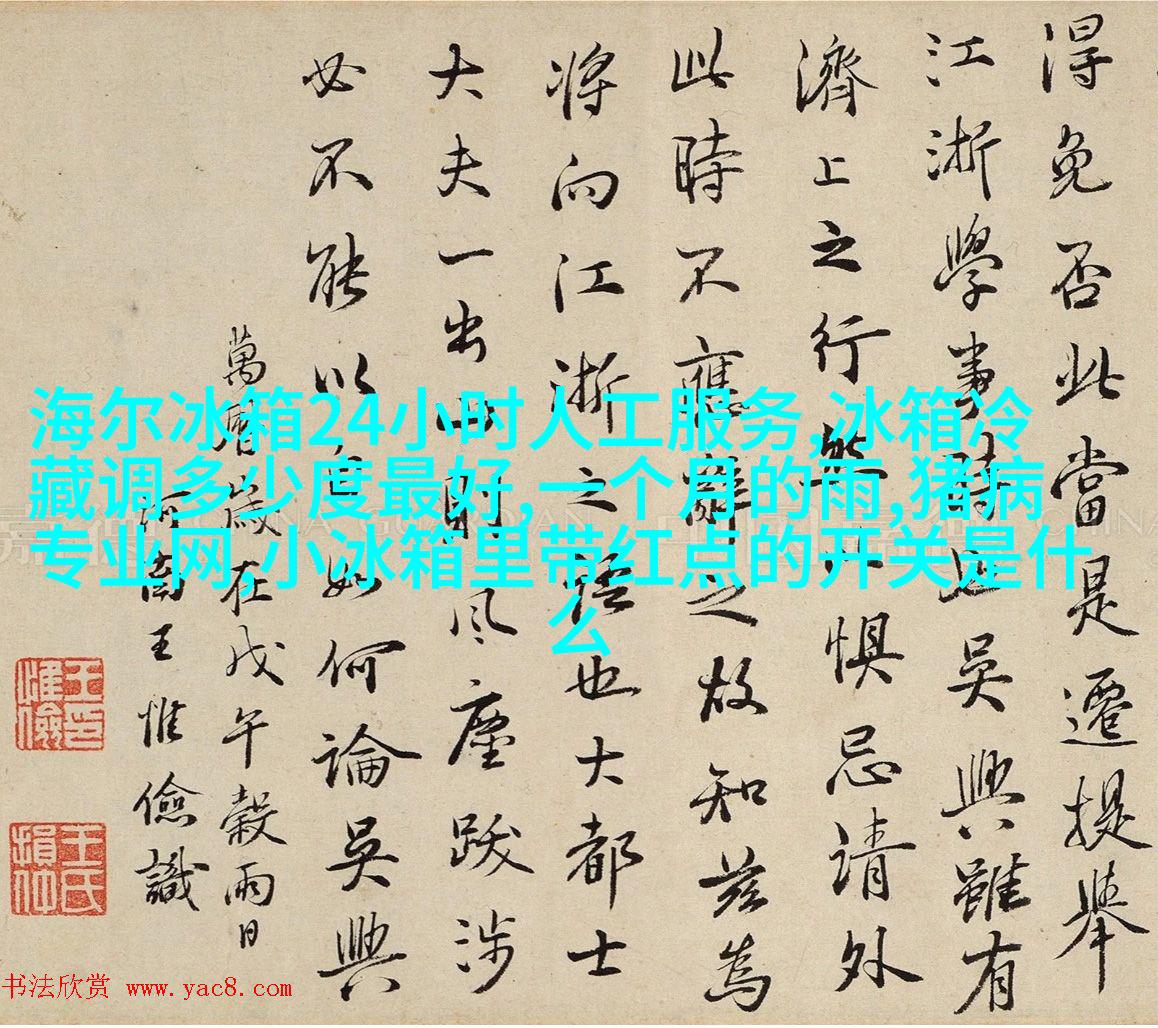 得免否此當是遷提舉
江浙學事時吳興雖有
濟上之行以懼忌請外
此時不應辭之故知茲為
將向江浙之語也大都士
大夫一出山則風塵跋涉
必不能以自如何論吳興
萬曆歲在戊午穀雨日
河南王惟儉識
王印惟儉
王氏損仲
海尔冰箱24小时人工服务,冰箱冷
藏调多少度最好,一个月的雨,猪病
专业网,小冰箱里带红点的开关是什
么
书法欣赏 www.yac8.com